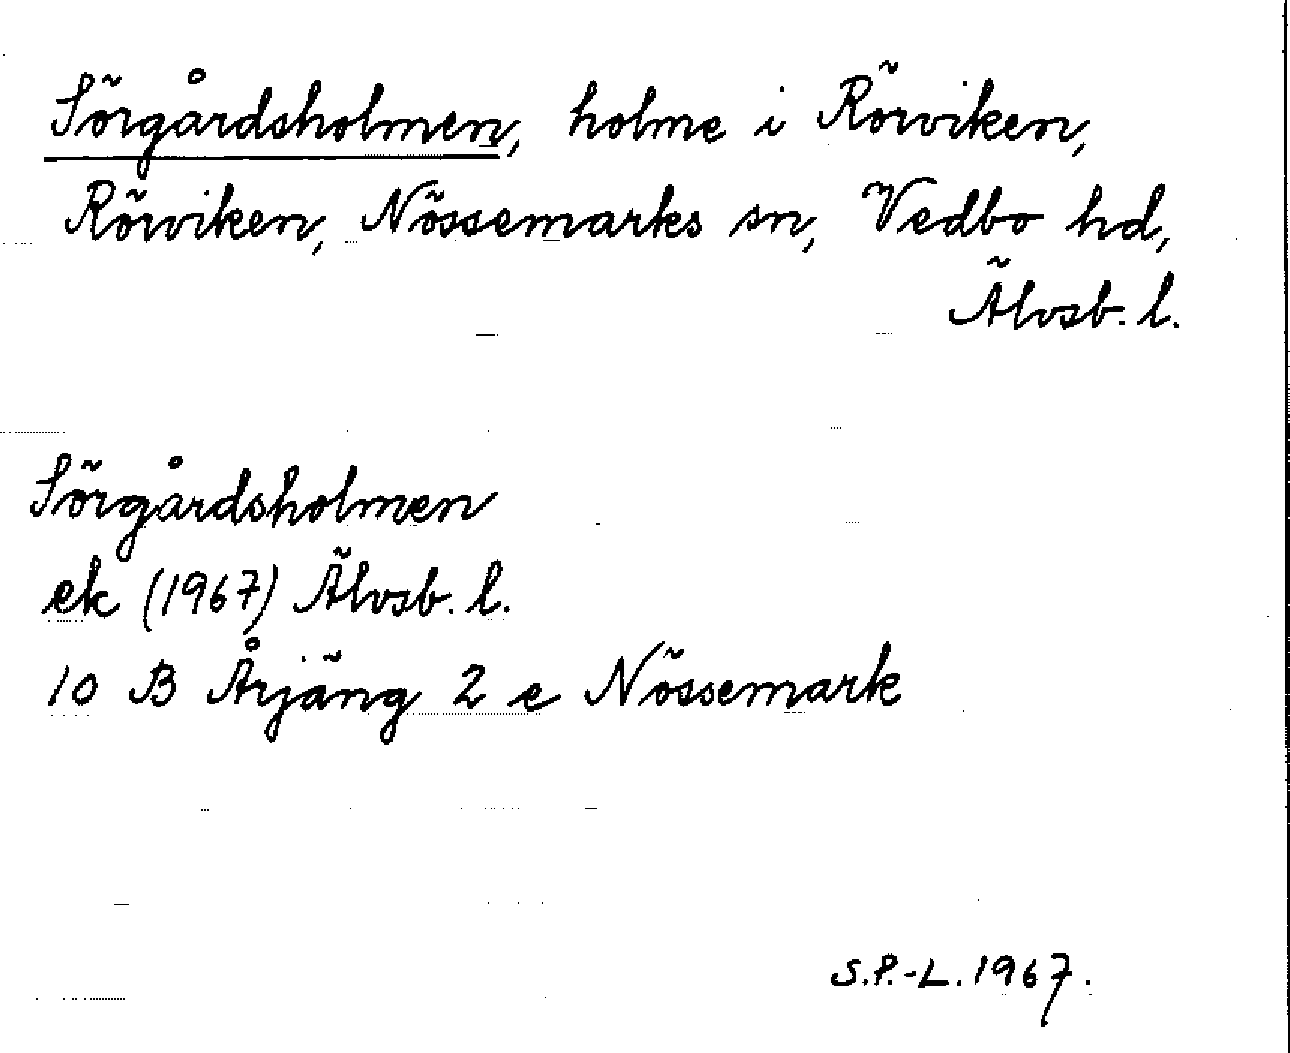 Sörgårdsholmen, holme i Rörviken,
Rörviken, Nössemarks sn, Vedbo hd,
Älvsb. l.
Sörgårdsholmen
ek (1967) Älvsb. l.
10 B Årjäng 2 e Nössemark
S.P.-L. 1967.